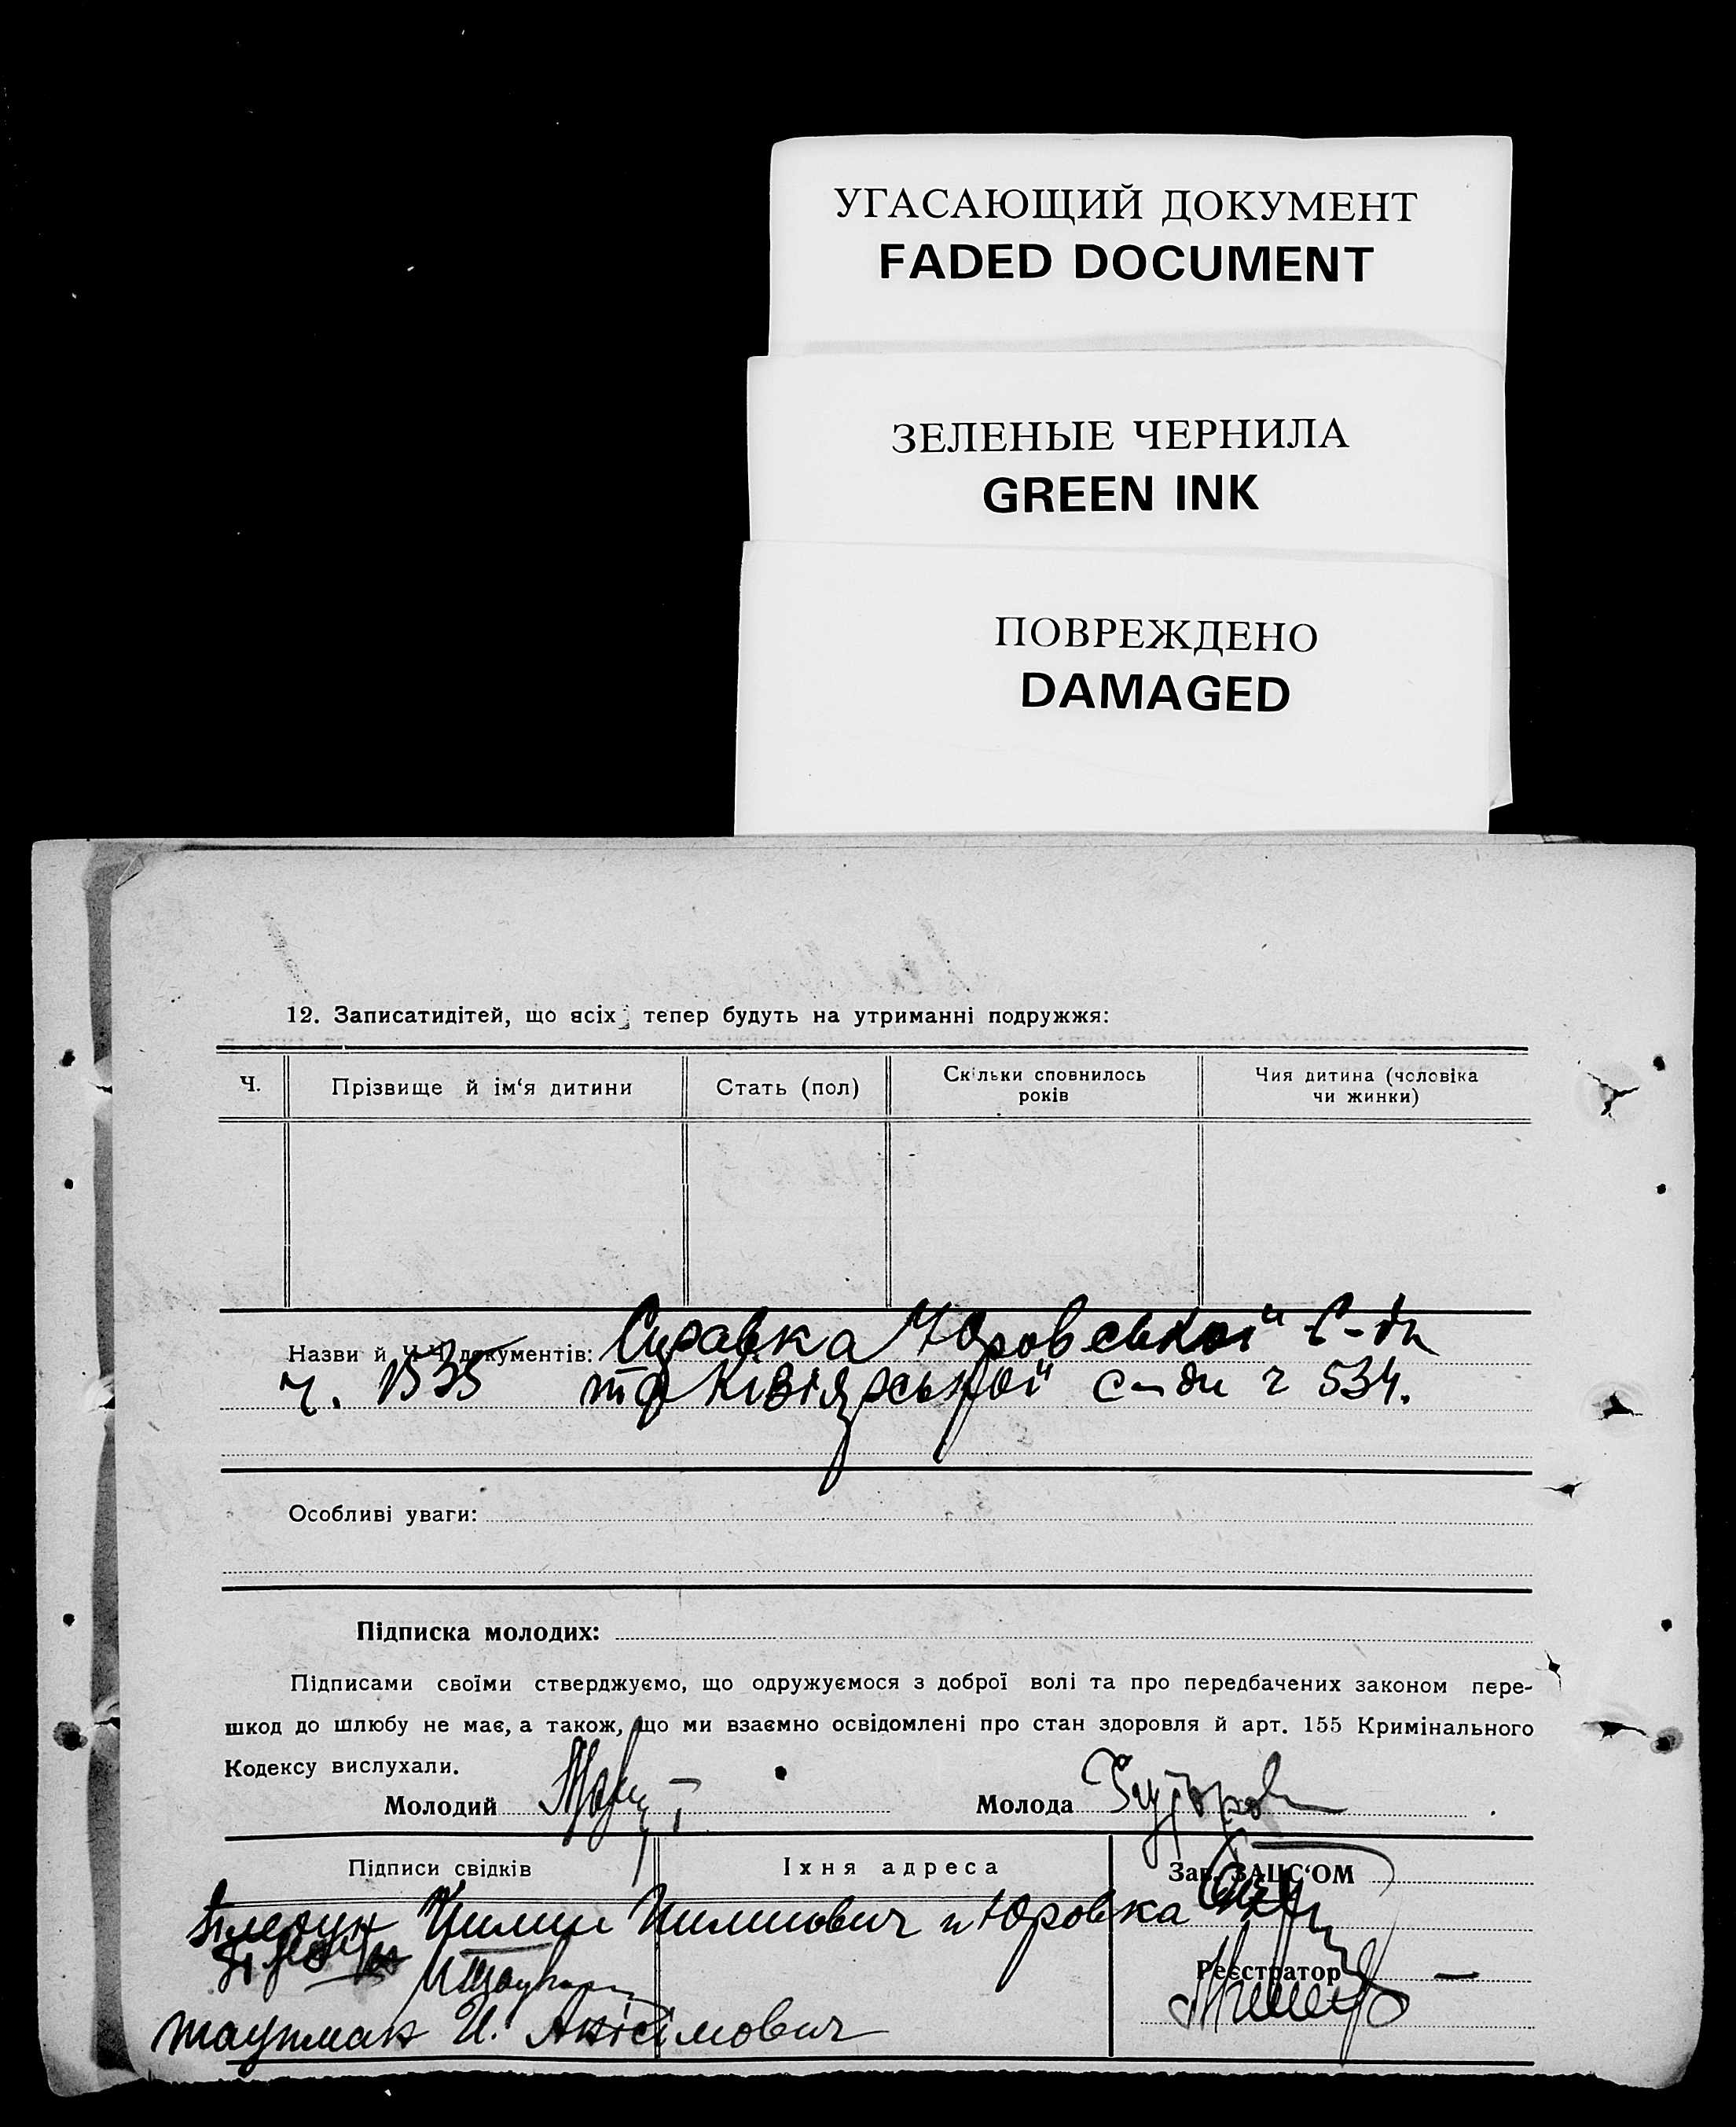 УГАСАЮЩИЙ ДОКУМЕНТ
FADED DOCUMENT
ЗЕЛЕНЫЕ ЧЕРНИЛА
GREEN INK
ПОВРЕЖДЕНО
DAMAGED
12. Записатидітей, що всіх тепер будуть на утриманні подружжя:
Ч. Прізвище й ім‘я дитини Стать (пол) Скільки сповнилось років Чия дитина (чоловіка чи жинки)
Назви й Ч.Ч. документів: Справка Юровської С-ди
ч. 1535 та Ківіярської с-ди ч 534.
Особливі уваги:
Підписка молодих:
Підписами своїми стверджуємо, що одружуємося з доброї волі та про передбачених законом пере-
шкод до шлюбу не має, а також, що ми взаємно освідомлені про стан здоровля й арт. 155 Кримінального
Кодексу вислухали.
Молодий Молода
Підписи свідків Їхня адреса Зав. ЗАЦС‘ОМ
Пилип Пилипович Юровка
Реєстратор
И. Анісімович